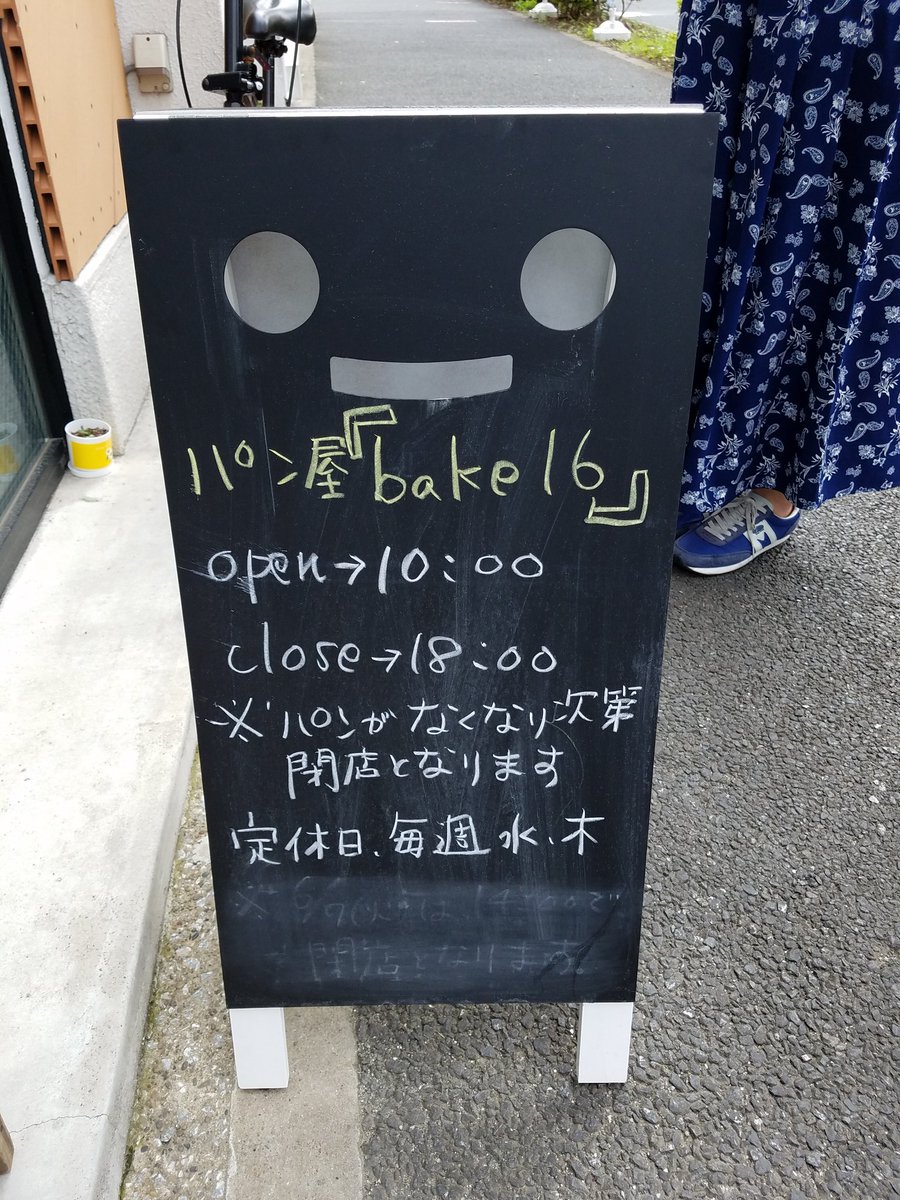 パン屋『bake16』
open→10:00
close→18:00
※パンがなくなり次第
閉店となります
定休日、毎週 水、木
閉店となります。